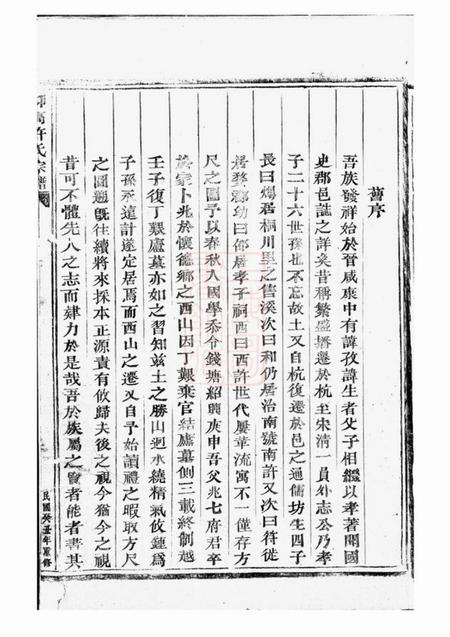 舊序
吾族發祥始於晉咸康中有諱孜諱生者父子相繼以孝著聞國
史郡邑誌之詳矣昔稱繁盛播遷於杭至宋清一員外志公乃孝
子二十六世孫也不忘故土又自杭復遷於邑之通儒坊生四子
長曰煬居桐川里之售溪次曰和仍居治南號南許又次曰符從
居婺郡幼曰仰居孝子祠西曰西許世代屢華流寓不一僅存方
尺之圖予以春秋入國學忝令錢塘紹興庚申吾父兆七府君卒
於家卜兆於懷德鄉之西山因丁艱棄官結廬墓側三載終制越
壬子復丁艱廬墓亦如之習知茲土之勝山廻水繞精氣攸鍾為
子孫永遠計遂定居焉而西山之遷又自予始讀禮之暇取方尺
之圖遡既往續將來探本正源責有攸歸夫後之視今猶今之視
昔可不體先人之志而肆力於是哉吾於族屬之賢者能者書其
許氏宗譜
民國癸丑年重修